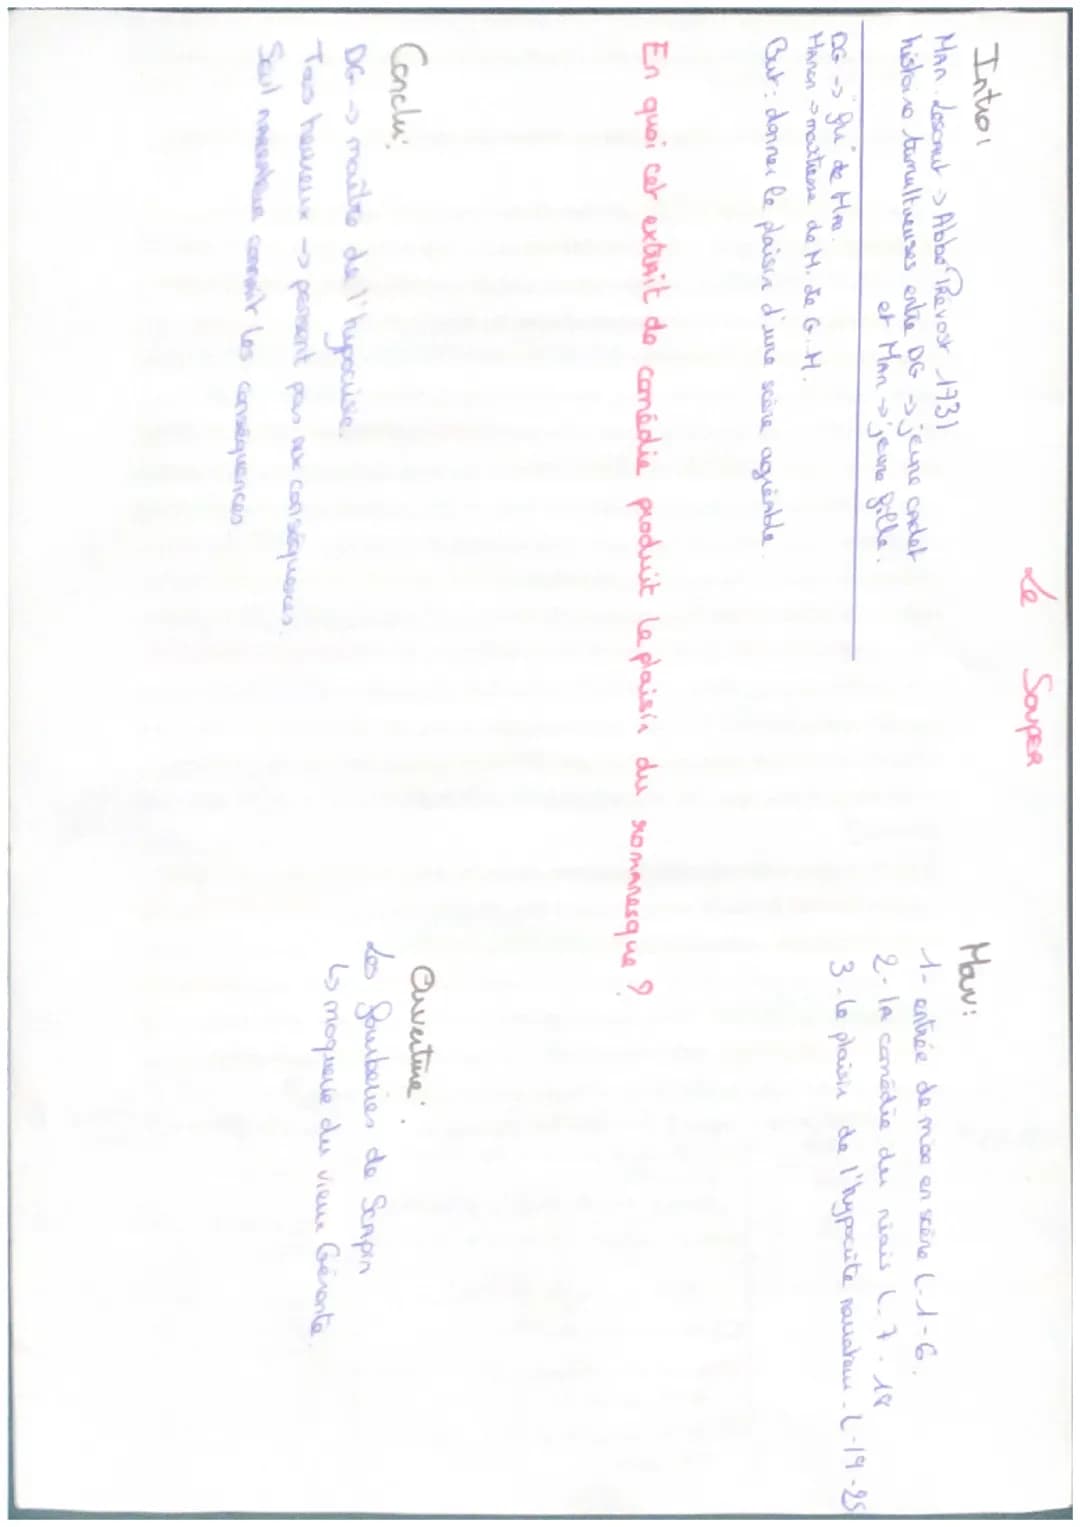 Le Souper
Intro:
Man. Lescaut -> Abbé Prévost 1731
histoire tumultueuses entre DG -> jeune cadet
et Man -> jeune fille.
DG -> "fr" de Man
Manon -> maitresse de M. de G. M.
But: donner le plaisir d'une scène agréable.
Mouv:
1- entrée de mise en scène l. 1-6.
2- la comédie du niais l. 7-18
3- le plaisir de l'hypocrite narrateur. l-19-25
En quoi cet extrait de comédie produit le plaisir du romanesque ?
Conclu:
DG -> maître de l'hypocrisie.
Tous heureux -> pensent pas aux conséquences.
Seul narrateur connait les conséquences.
Ouverture:
Les fourberies de Scapin
↳ moquerie du vieux Géronte.